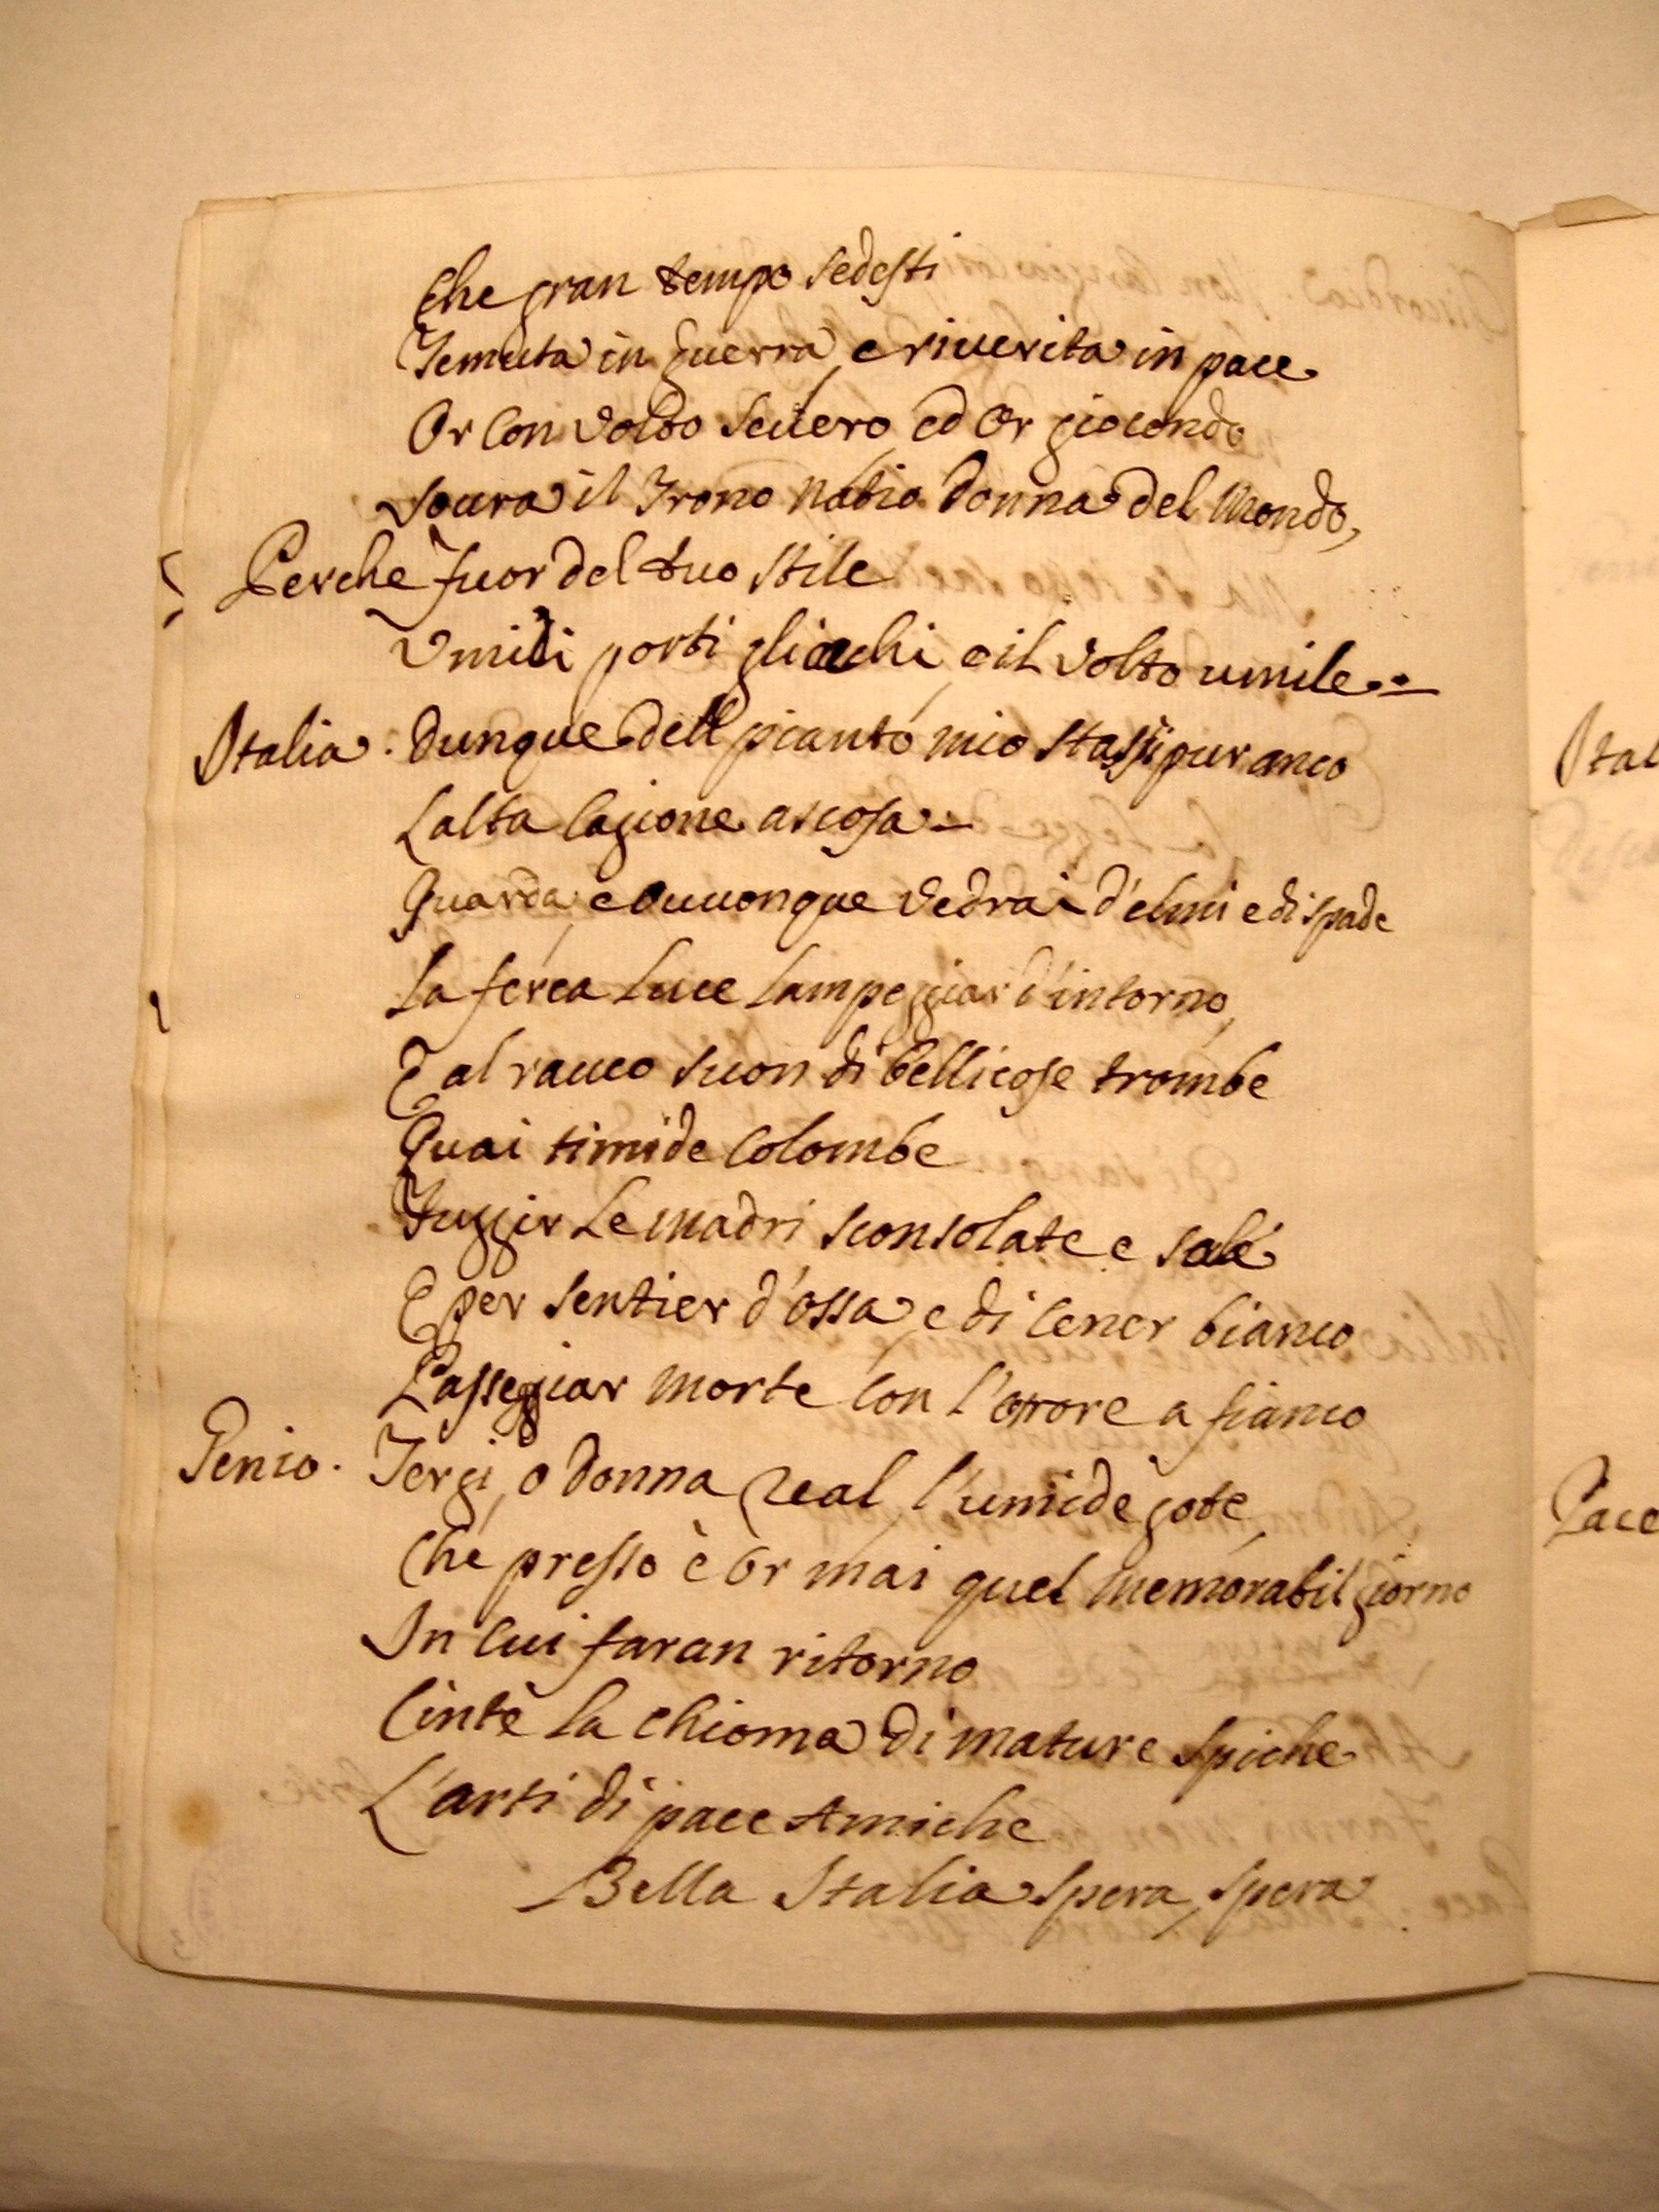 Che gran tempo sedesti
Temuta in guerra, e riuerita in pace
Or con volto seuero ed or giocondo
Soura il Trono natio donna del Mondo,
Perche fuor del tuo stile
Vmidi porti gli occhi, e il volto umile
Italia. Dunque dell pianto mio stassi pur anco
L'alta cagione ascosa
Guarda, e ouuonque vedrai d'elmi e di spade
La ferea luce lampeggiar d'intorno,
E al rauco suon di bellicose trombe
Quai timide colombe
Fuggir le madri sconsolate e sole
E per sentier d'ossa, e di cener bianco
Passeggiar morte con l'orrore a fianco
Genio. Tergi, o donna real, l'umide gote,
Che presso è or mai quel memorabil giorno
In cui faran ritorno
Cinte la chioma di mature spiche
L'arti di pace Amiche
Bella Italia spera, spera
Ital
Pace